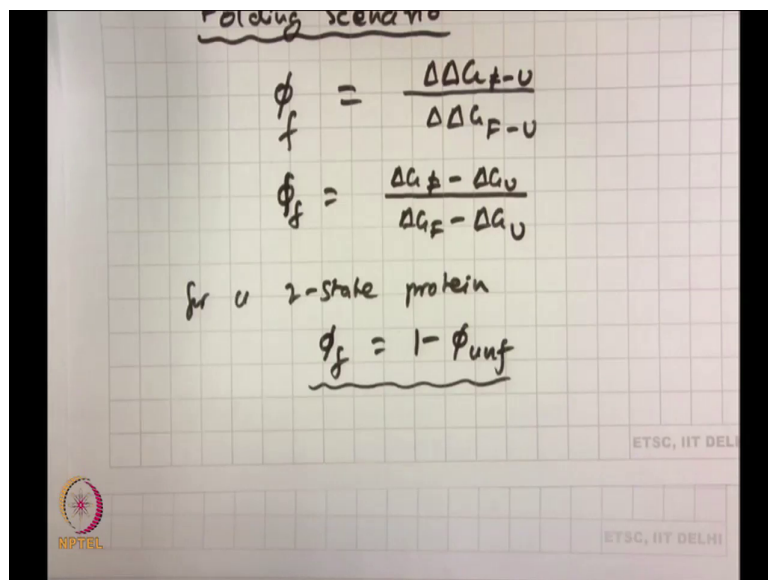 Folding Scenario
ϕf = ΔΔG‡-U / ΔΔGF-U
ϕf = ΔG‡ - ΔGU / ΔGF - ΔGU
for a 2-state protein
ϕf = 1- ϕunf
ETSC, IIT DEL
NPTEL
ETSC, IIT DELHI